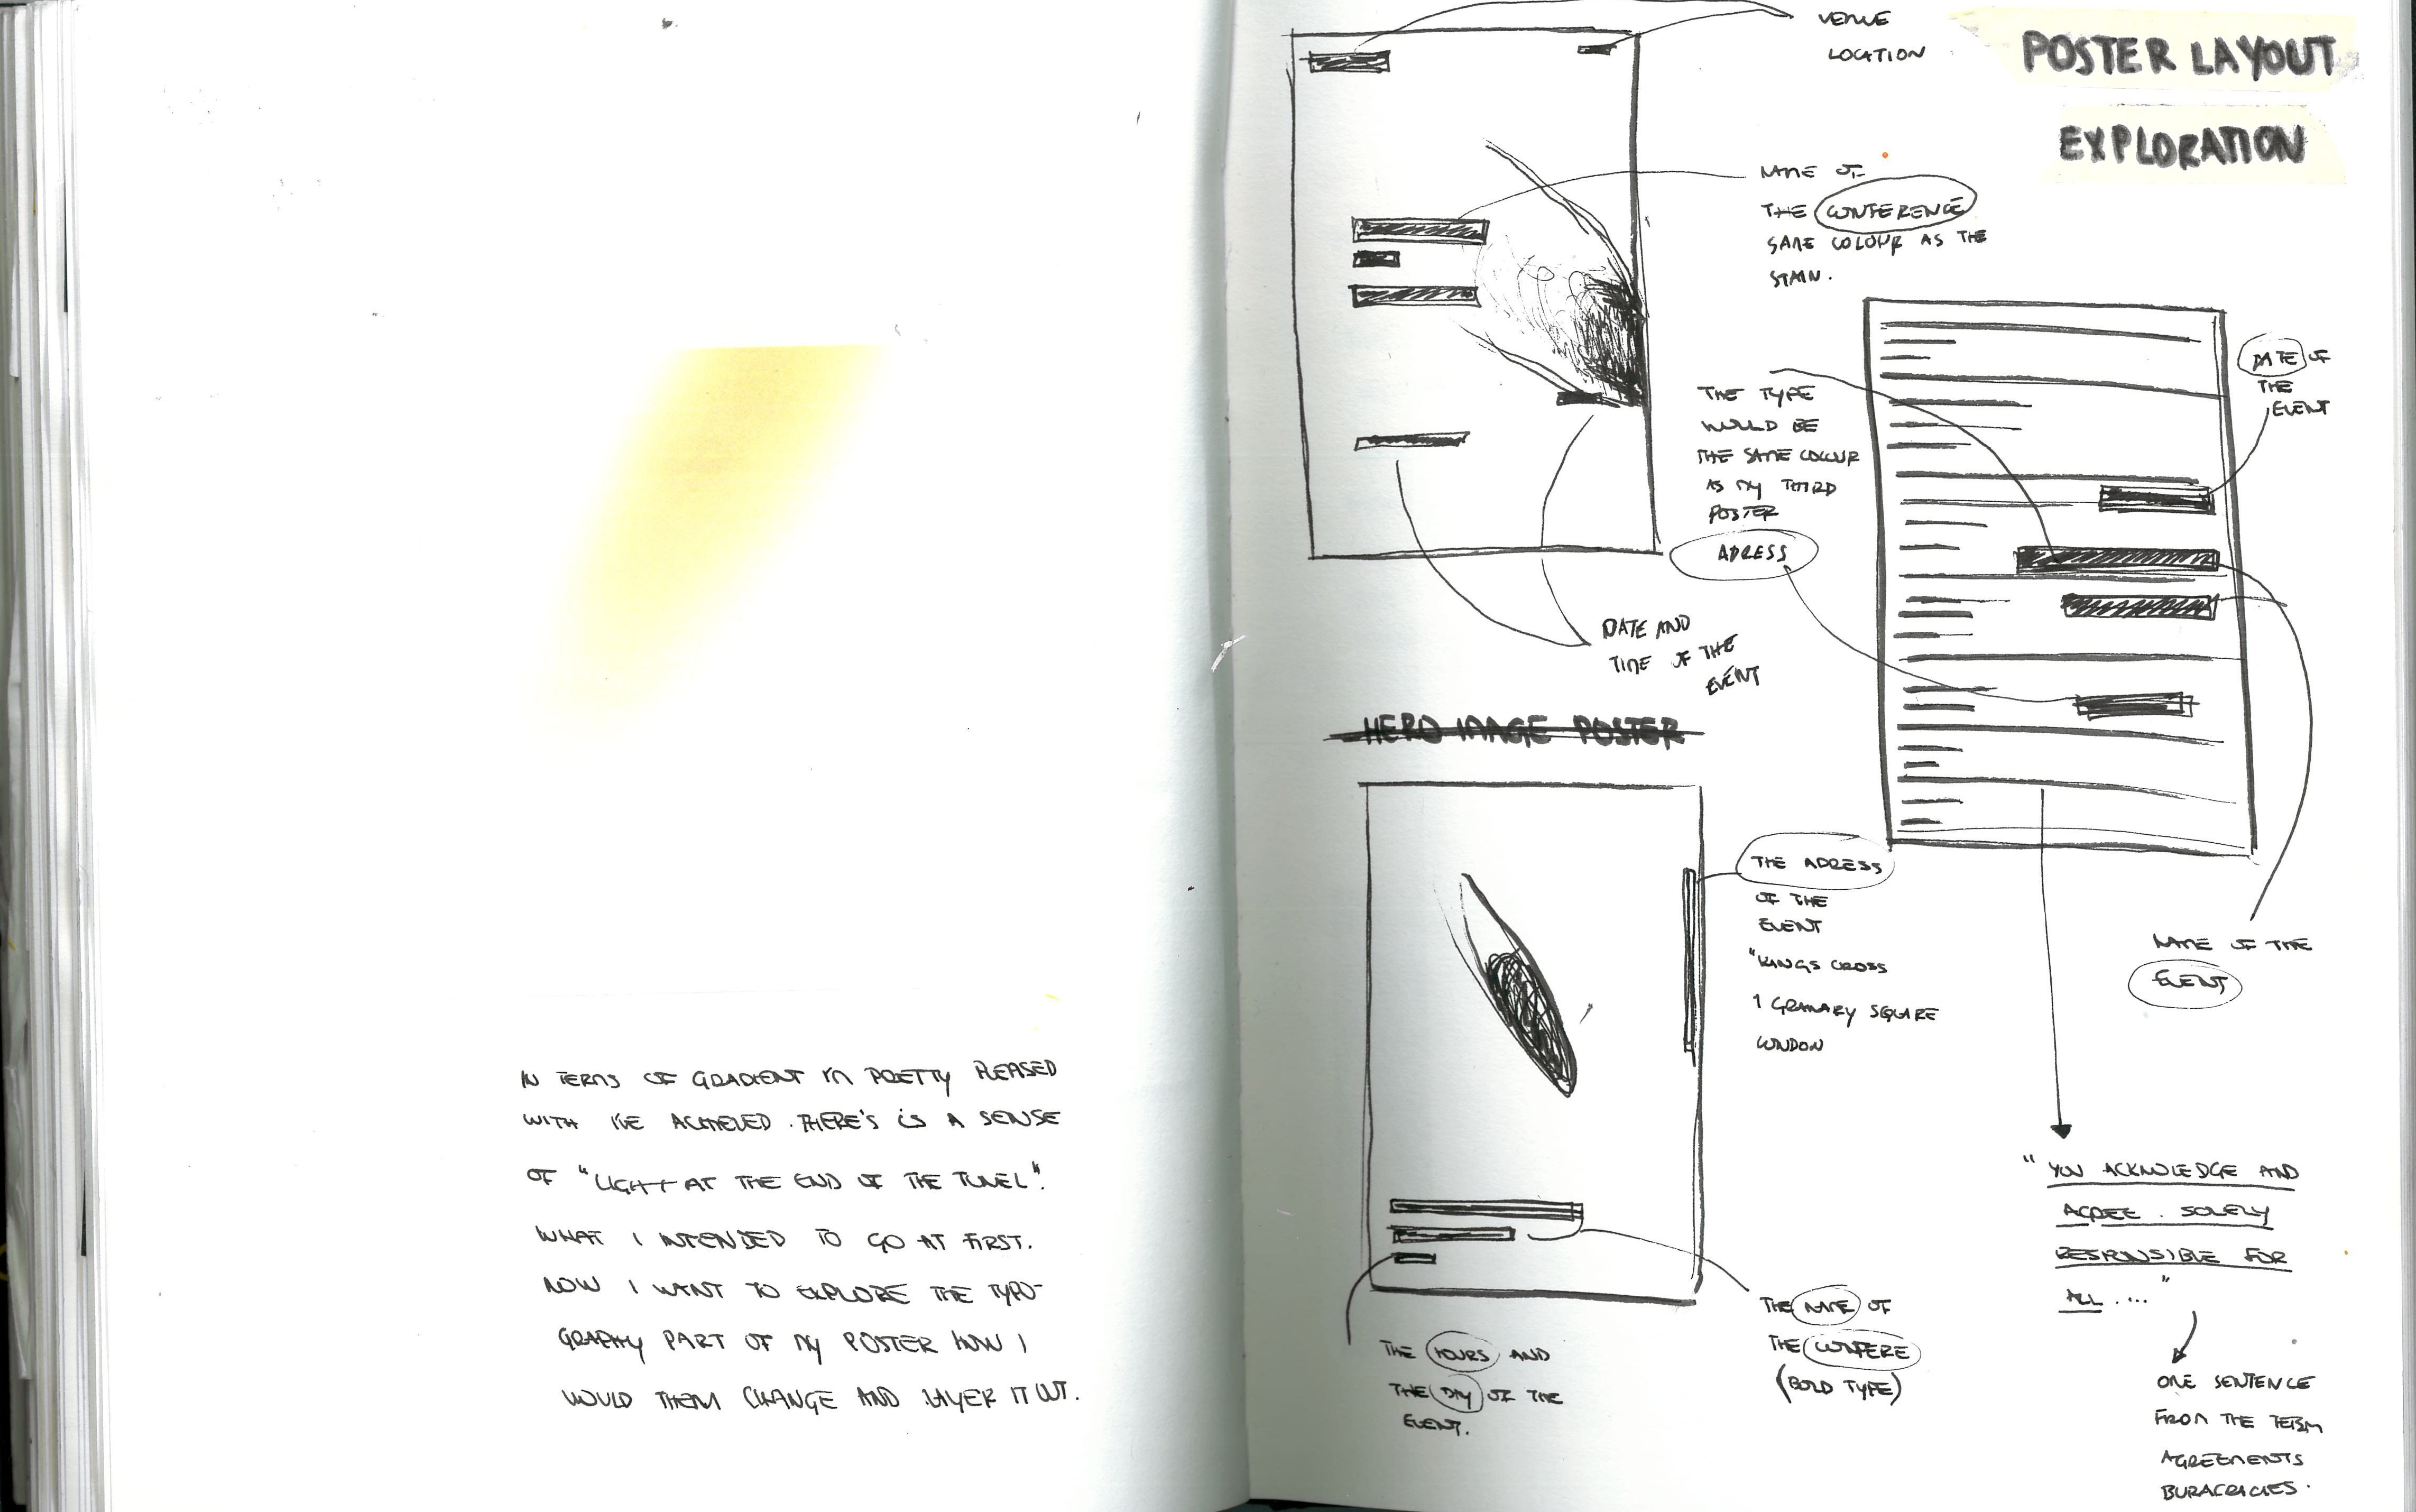 IN TERMS OF GRADIENT I'M PRETTY PLEASED
WITH I'VE ACHIEVED. THERE'S IS A SENSE
OF "LIGHT AT THE END OF THE TUNEL".
WHAT I INTENDED TO GO AT FIRST.
NOW I WANT TO EXPLORE THE TYPO-
GRAPHY PART OF MY POSTER HOW I
WOULD THEM CHANGE AND LAYER IT OUT.
POSTER LAYOUT
EXPLORATION
VENUE
LOCATION
NAME OF
THE CONFERENCE
SAME COLOUR AS THE
STAIN.
THE TYPE
WOULD BE
THE SAME COLOUR
AS MY THIRD
POSTER
ADRESS
DATE OF
THE
EVENT
DATE AND
TIME OF THE
EVENT
HERO IMAGE POSTER
THE ADRESS
OF THE
EVENT
"KINGS CROSS
1 GRANARY SQUARE
LONDON
NAME OF THE
EVENT
THE HOURS AND
THE DAY OF THE
EVENT.
THE NAME OF
THE CONFERE
(BOLD TYPE)
"YOU ACKNOLEDGE AND
AGREE. SOLELY
RESPONSIBLE FOR
ALL...."
ONE SENTENCE
FROM THE TERM
AGREEMENTS
BURACRACIES.